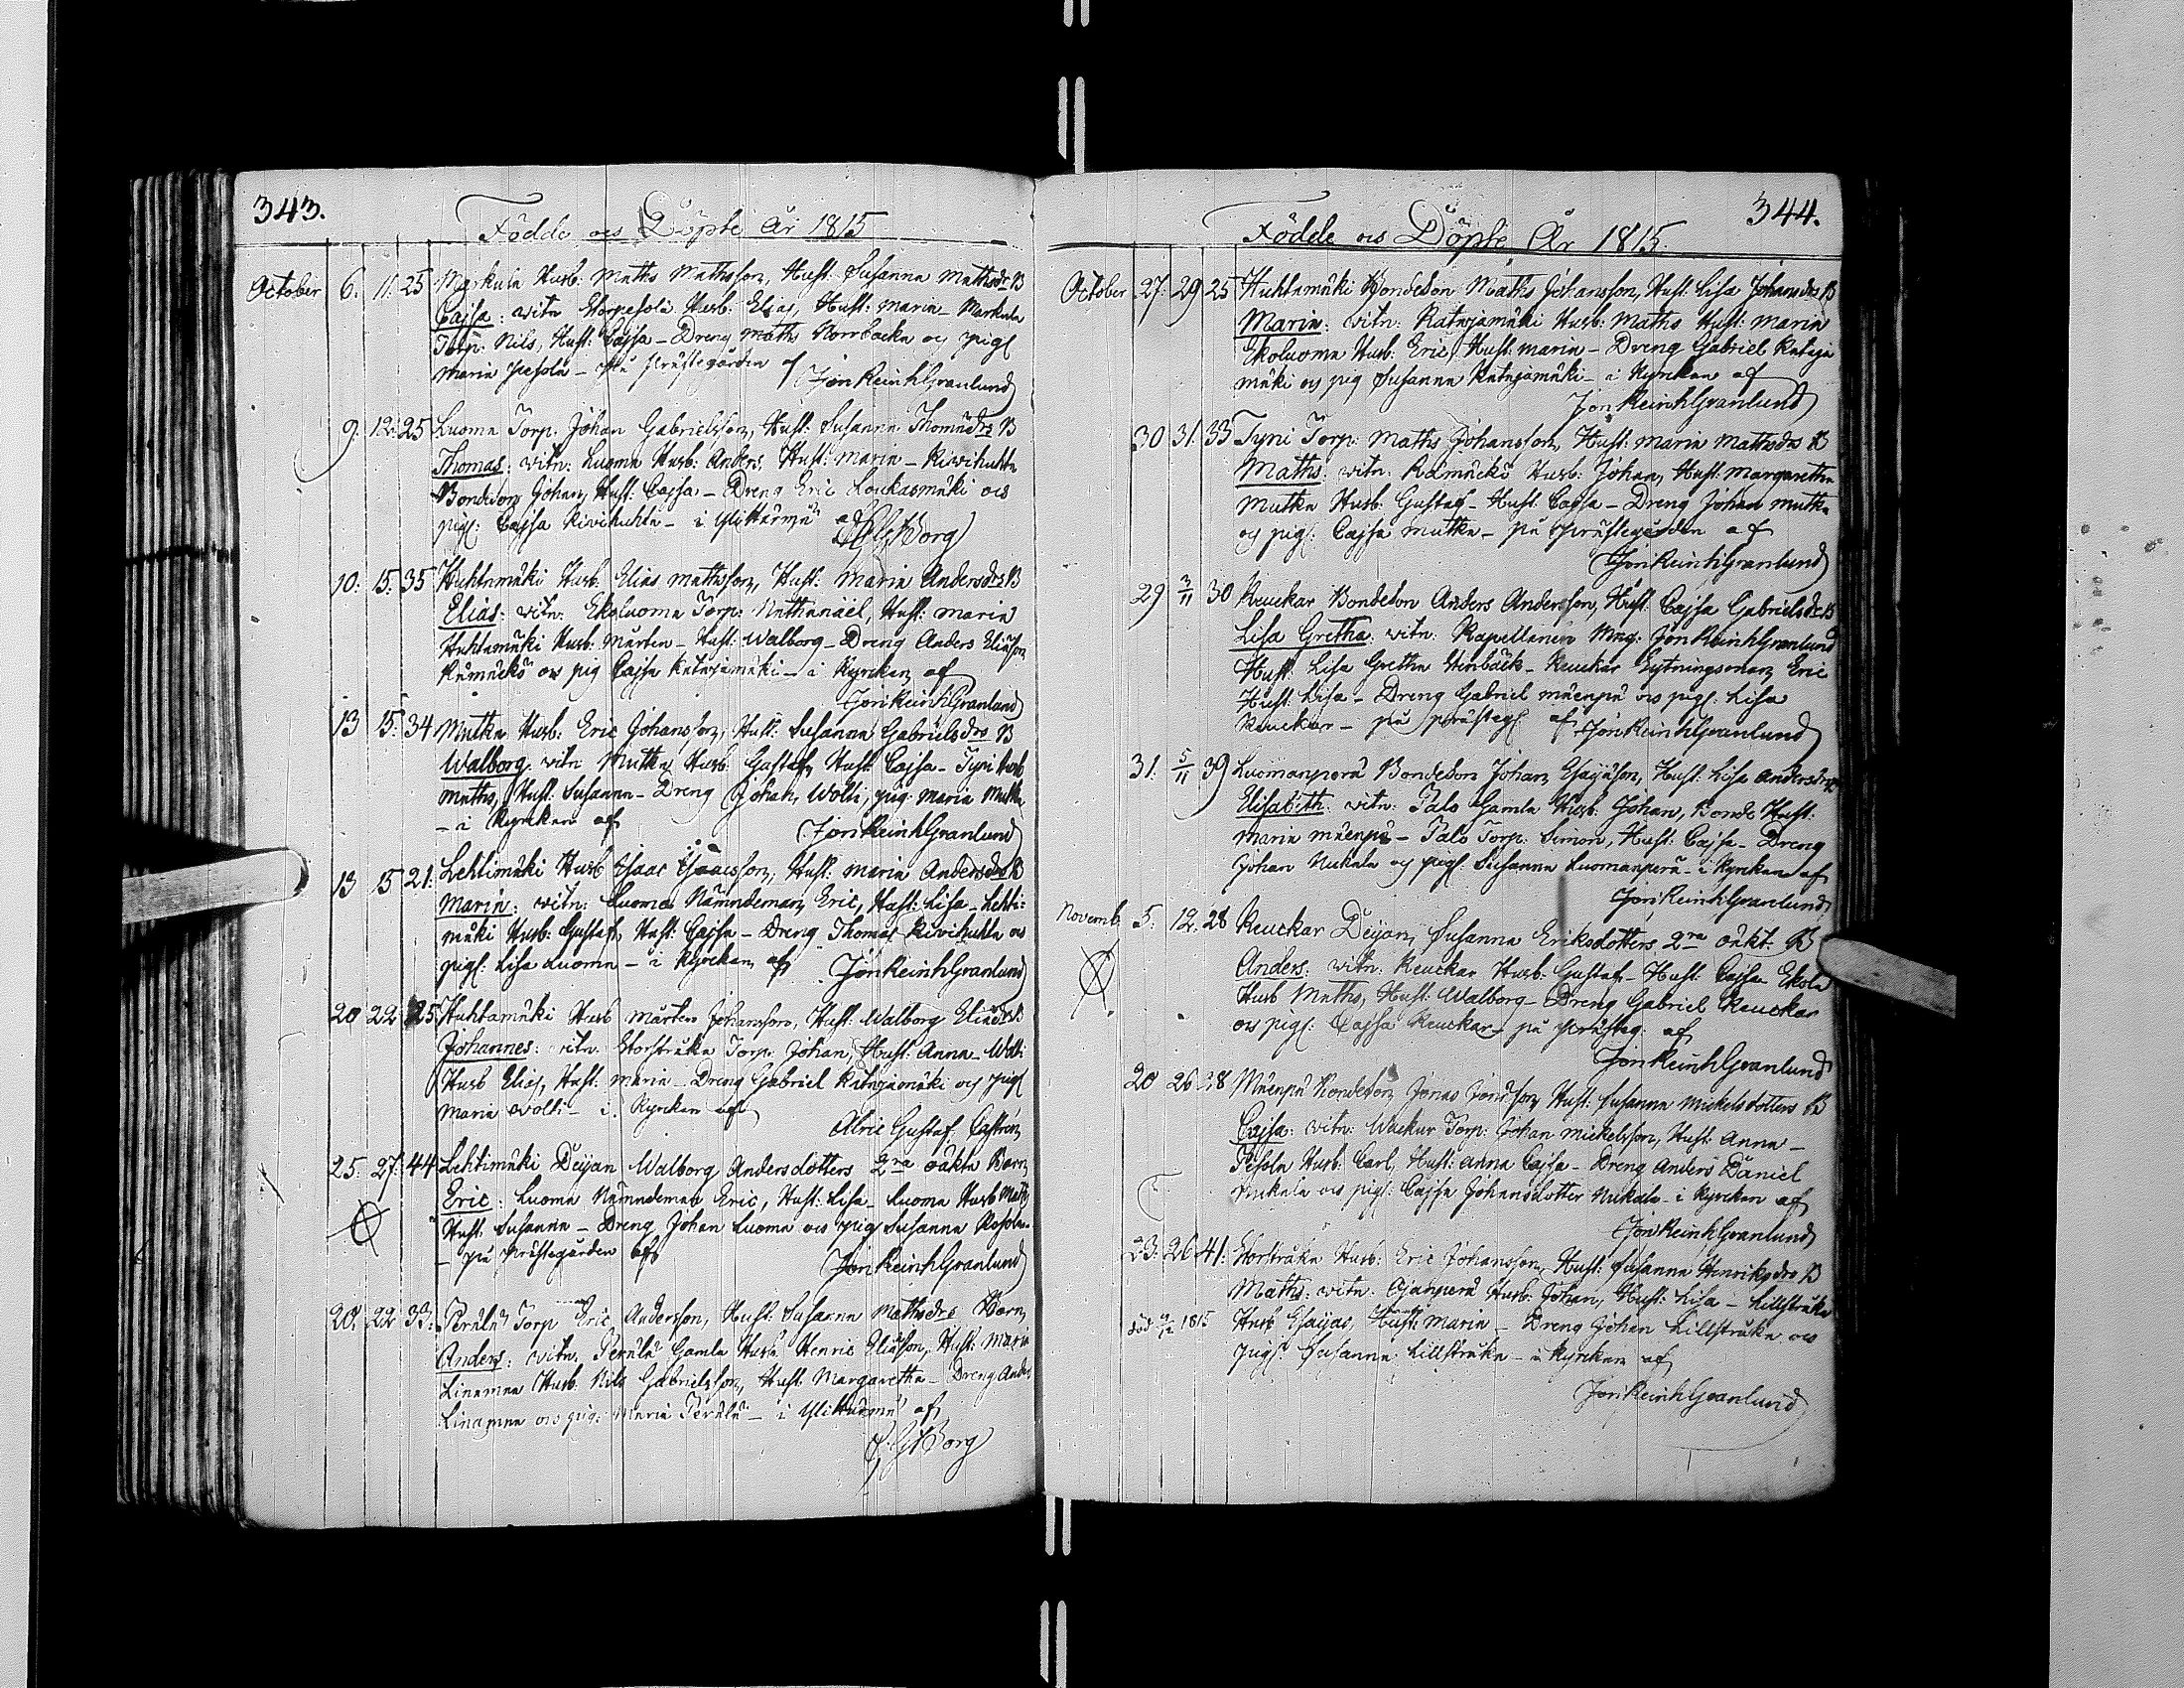 343.
Födde och Döpte År 1815
October 6. 11. 25 Markula Husb: Maths Mathsson, Hust: Susanna Mathsdr B
Cajsa: vitn Storpesola Husb: Elias, Hust: Maria - Markula
Torp: Nils, Hust: Cajsa - Dreng Maths Norrbacka och pig
Maria Pesola - på prästegården af JonReinhGranlund
9. 12. 25 Luoma Torp. Johan Gabrielsson, Hust: Susanna Thomædr B
Thomas: vitn: Luoma Husb: Anders, Hust: Maria - Kivihuhta
Bondeson Johan, Hust: Cajsa - Dreng Eric Loukasmäki och
pig: Cajsa Kivihuhta - i Ylihärmä af
Borg
10: 15: 35 Huhtamäki Husb. Elias Mathsson, Hust: Maria Andersdr B
Elias: vitn: Ekoluoma Torp: Nathanaël, Hust: Maria
Huhtamäki Husb: Mårten - Hust: Walborg - Dreng Anders Eliasson
Rämäckö och pig Cajsa Katajamäki - i Kyrckan af
JonReinhGranlund
13 15: 34 Mutka Husb: Eric Johansson, Hust: Susanna Gabrielsdr B
Walborg. vitn Mutka Husb. Gustaf, Hust Cajsa - Tyni Husb
Maths, Hust. Susanna - Dreng Johan Wolti, pig: Maria Mutka
- i Kyrckan af JonReinhGranlund
13 15 21: Lehtimäki Husb Isaac Isaacsson, Hust: Maria Andersdr B
Maria: vitn: Luoma Nämndeman Eric, Hust: Lisa - Lehti:
mäki Husb: Gustaf, Hust: Cajsa - Dreng Thomas Kivihuhta och
pig: Lisa Luoma - i Kyrckan af JonReinhGranlund
20 22 25 Huhtamäki Husb Mårten Johansson, Hust: Walborg Eliædr B
Johannes: vitn. Storstråka Torp: Johan, Hust: Anna - Wolti
Husb Elias, Hust: Maria - Dreng Gabriel Katajamäki och pig
Maria Wolti - i Kyrckan af
Alric Gustaf Castren
25. 27: 44 Lehtimäki Deijan Walborg Andersdotters 2ra oäkta Barn
Eric: Luoma Nämndeman Eric, Hust: Lisa - Luoma Husb Maths
Hust: Susanna - Dreng Johan Luoma och pig Susanna
- på prästegården af JonReinhGranlund
20. 22 33: Perälä Torp Eric Andersson, Hust: Susanna Mathsdr Barn
Anders: vitn. Perälä Gamla Husb: Henric Eliasson, Hust: Maria
Linamaa Husb: Nils Gabrielsson, Hust Margaretha - Dreng Anders
Linamaa och pig: Maria Perälä - i Ylihärmä af
Borg
344.
Födde och Döpte År 1815.
October 27. 29 25 Huhtamäki Bondeson Maths Johansson, Hust: Lisa Johansdr B
Maria: vitn: Katajamäki Husb: Maths Hust: Maria
Ekoluoma Husb: Eric, Hust: Maria - Dreng Gabriel Kataja
mäki och pig Susanna Katajamäki - i Kyrckan af
JonReinhGranlund
30 31. 33 Tyni Torp: Maths Johansson, Hust: Maria Mathsdr B
Maths: vitn: Rämäckö Husb: Johan, Hust: Margaretha
Mutka Husb: Gustaf - Hust Cajsa - Dreng Johan Mutka
och pig: Cajsa Mutka - på prästegården af
JonReinhGranlund
29 3/11 30 Keuckar Bondeson Anders Andersson, Hust: Cajsa Gabrielsdr B
Lisa Gretha: vitn: Kapellanen Mag: JonReinhGranlund
Hust: Lisa Gretha Stenbäck - Keuckar Sytningsman Eric
Hust. Lisa - Dreng Gabriel Mäenpä och pig: Lisa
Keuckar - på prästeg: af JonReinhGranlund
31. 5/11 39 Luomanperä Bondeson Johan Esajasson, Hust: Lisa Andersdr B
Elisabeth: vitn: Palo Gamla Husb: Johan, Bonde Hust:
Maria Mäenpä - Palo Torp: Simon, Hust: Cajsa - Dreng
Johan Nukala och pig: Susanna Luomanperä - i Kyrckan af
JonReinhGranlund
Novemb. 5. 12. 28 Keuckar Deijan Susanna Eriksdotters 2ra oäkt. B
Anders: vitn: Keuckar Husb: Gustaf - Hust: Cajsa Ekola
Husb Maths, Hust: Walborg - Dreng Gabriel Keuckar
och pig: Cajsa Keuckar - på prästeg: af
JonReinhGranlund
20 26 38 Mäenpä Bondeson Jonas Jonasson Hust: Susanna Mickelsdotters B
Cajsa: vitn: Wuckar Torp: Johan Mickelsson, Hust: Anna -
Pesola Husb: Carl, Hust: Anna Cajsa - Dreng Anders Daniel
Nukala och pig: Cajsa Johansdotter Nukala - i Kyrckan af
JonReinhGranlund
23: 26 41: Storstråka Husb: Eric Johansson, Hust: Susanna Henriksdr B
Maths: vitn: Ojanperä Husb: Johan, Hust: Lisa - Lillstråka
död 1815 Husb Esaijas, Hust: Maria - Dreng Johan Lillstråka och
pig: Susanna Lillstråka - i Kyrckan af
JonReinhGranlund